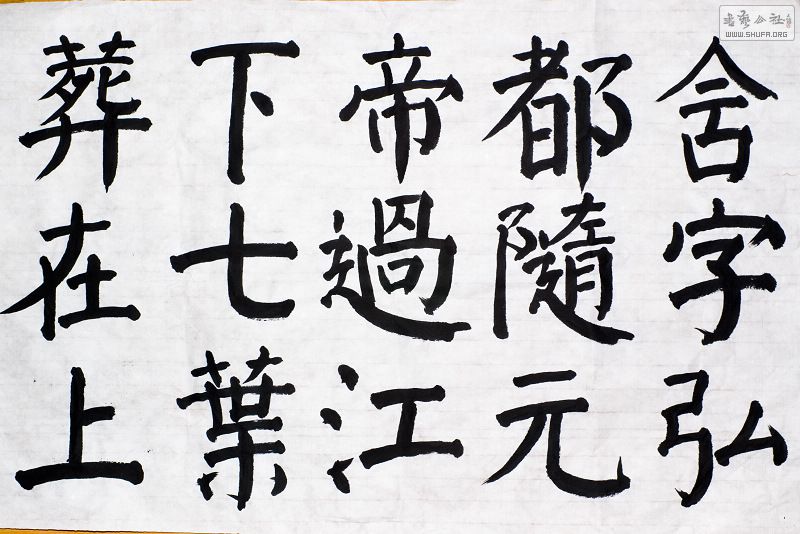 含字弘
都隨元
帝過江
下七葉
葬在上
書藝公社
WWW.SHUFA.ORG